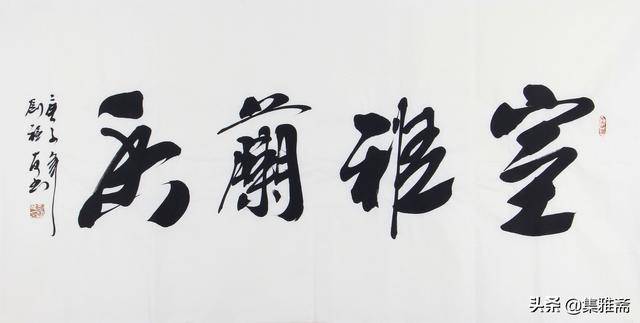 室雅蘭香
庚子年
头条 @集雅斋